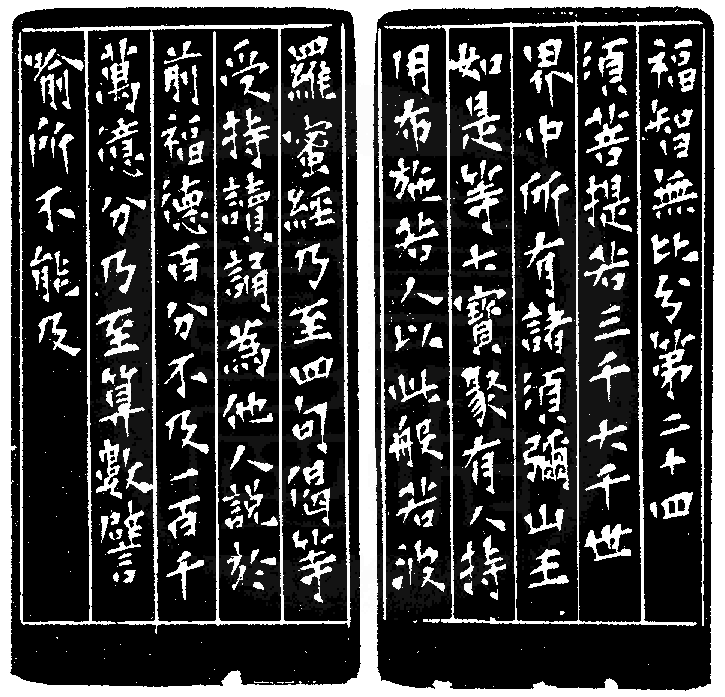 福智無比分第二十四
須菩提若三千大千世
界中所有諸須彌山王
如是等七寶聚有人持
用布施若人以此般若波
羅蜜經乃至四句偈等
受持讀誦為他人説於
前福德百分不及一百千
萬億分乃至算數譬
喻所不能及